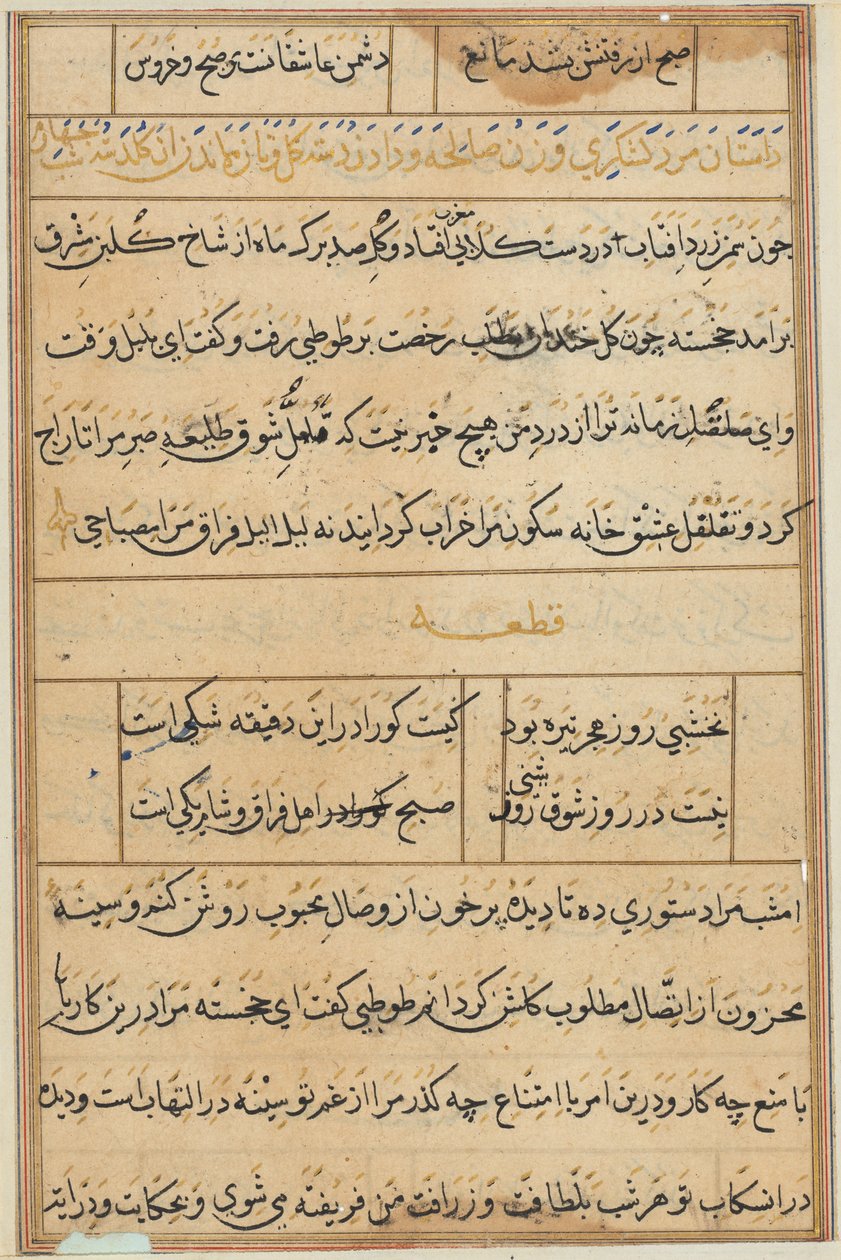 صبح از رفتنش بشد مانع
دشمن عاشقانست صبح و خروس
داستان مرد لشکری و زن صالحه و دادن دسته گل و باز ماندن ان گلدسته بجهان
چون سمن زرد افتاب در دست کلابی مغرب افتاد و گل صد برک ماه از شاخ کلبن مشرق
برآمد خجسته چون کل خندان بطلب رخصت بر طوطی رفت و کفت ای بلبل وقت
وای صلصل زمانه ترا از درد من هیچ خبر نیست که شوق طلیعه صبر مرا تاراج
کرد و تقلقل عشق خانه سکون مرا خراب کردانید نه لیل الیل فراق مرا مصباحی
قطعه
نخشبی روز هجر تیره بود
کیست کورا در این دقیقه شکی است
نیست در روز شوق روشنی
صبح اهل فراق و شام یکی است
امشب مرا دستوری ده تا دیده پر خون از وصال محبوب روشن کنم و سینه
محزون از اتصال مطلوب کلشن کردانم طوطی کفت ای خجسته مرا درین کار با
با منع چه کار و درین امر با امتناع چه کذر مرا از غم تو سینه در التهاب است و دیده
در انسکاب تو هر شب بلطافت و زرافت من فریفته می شوی و بحکایت و درایت